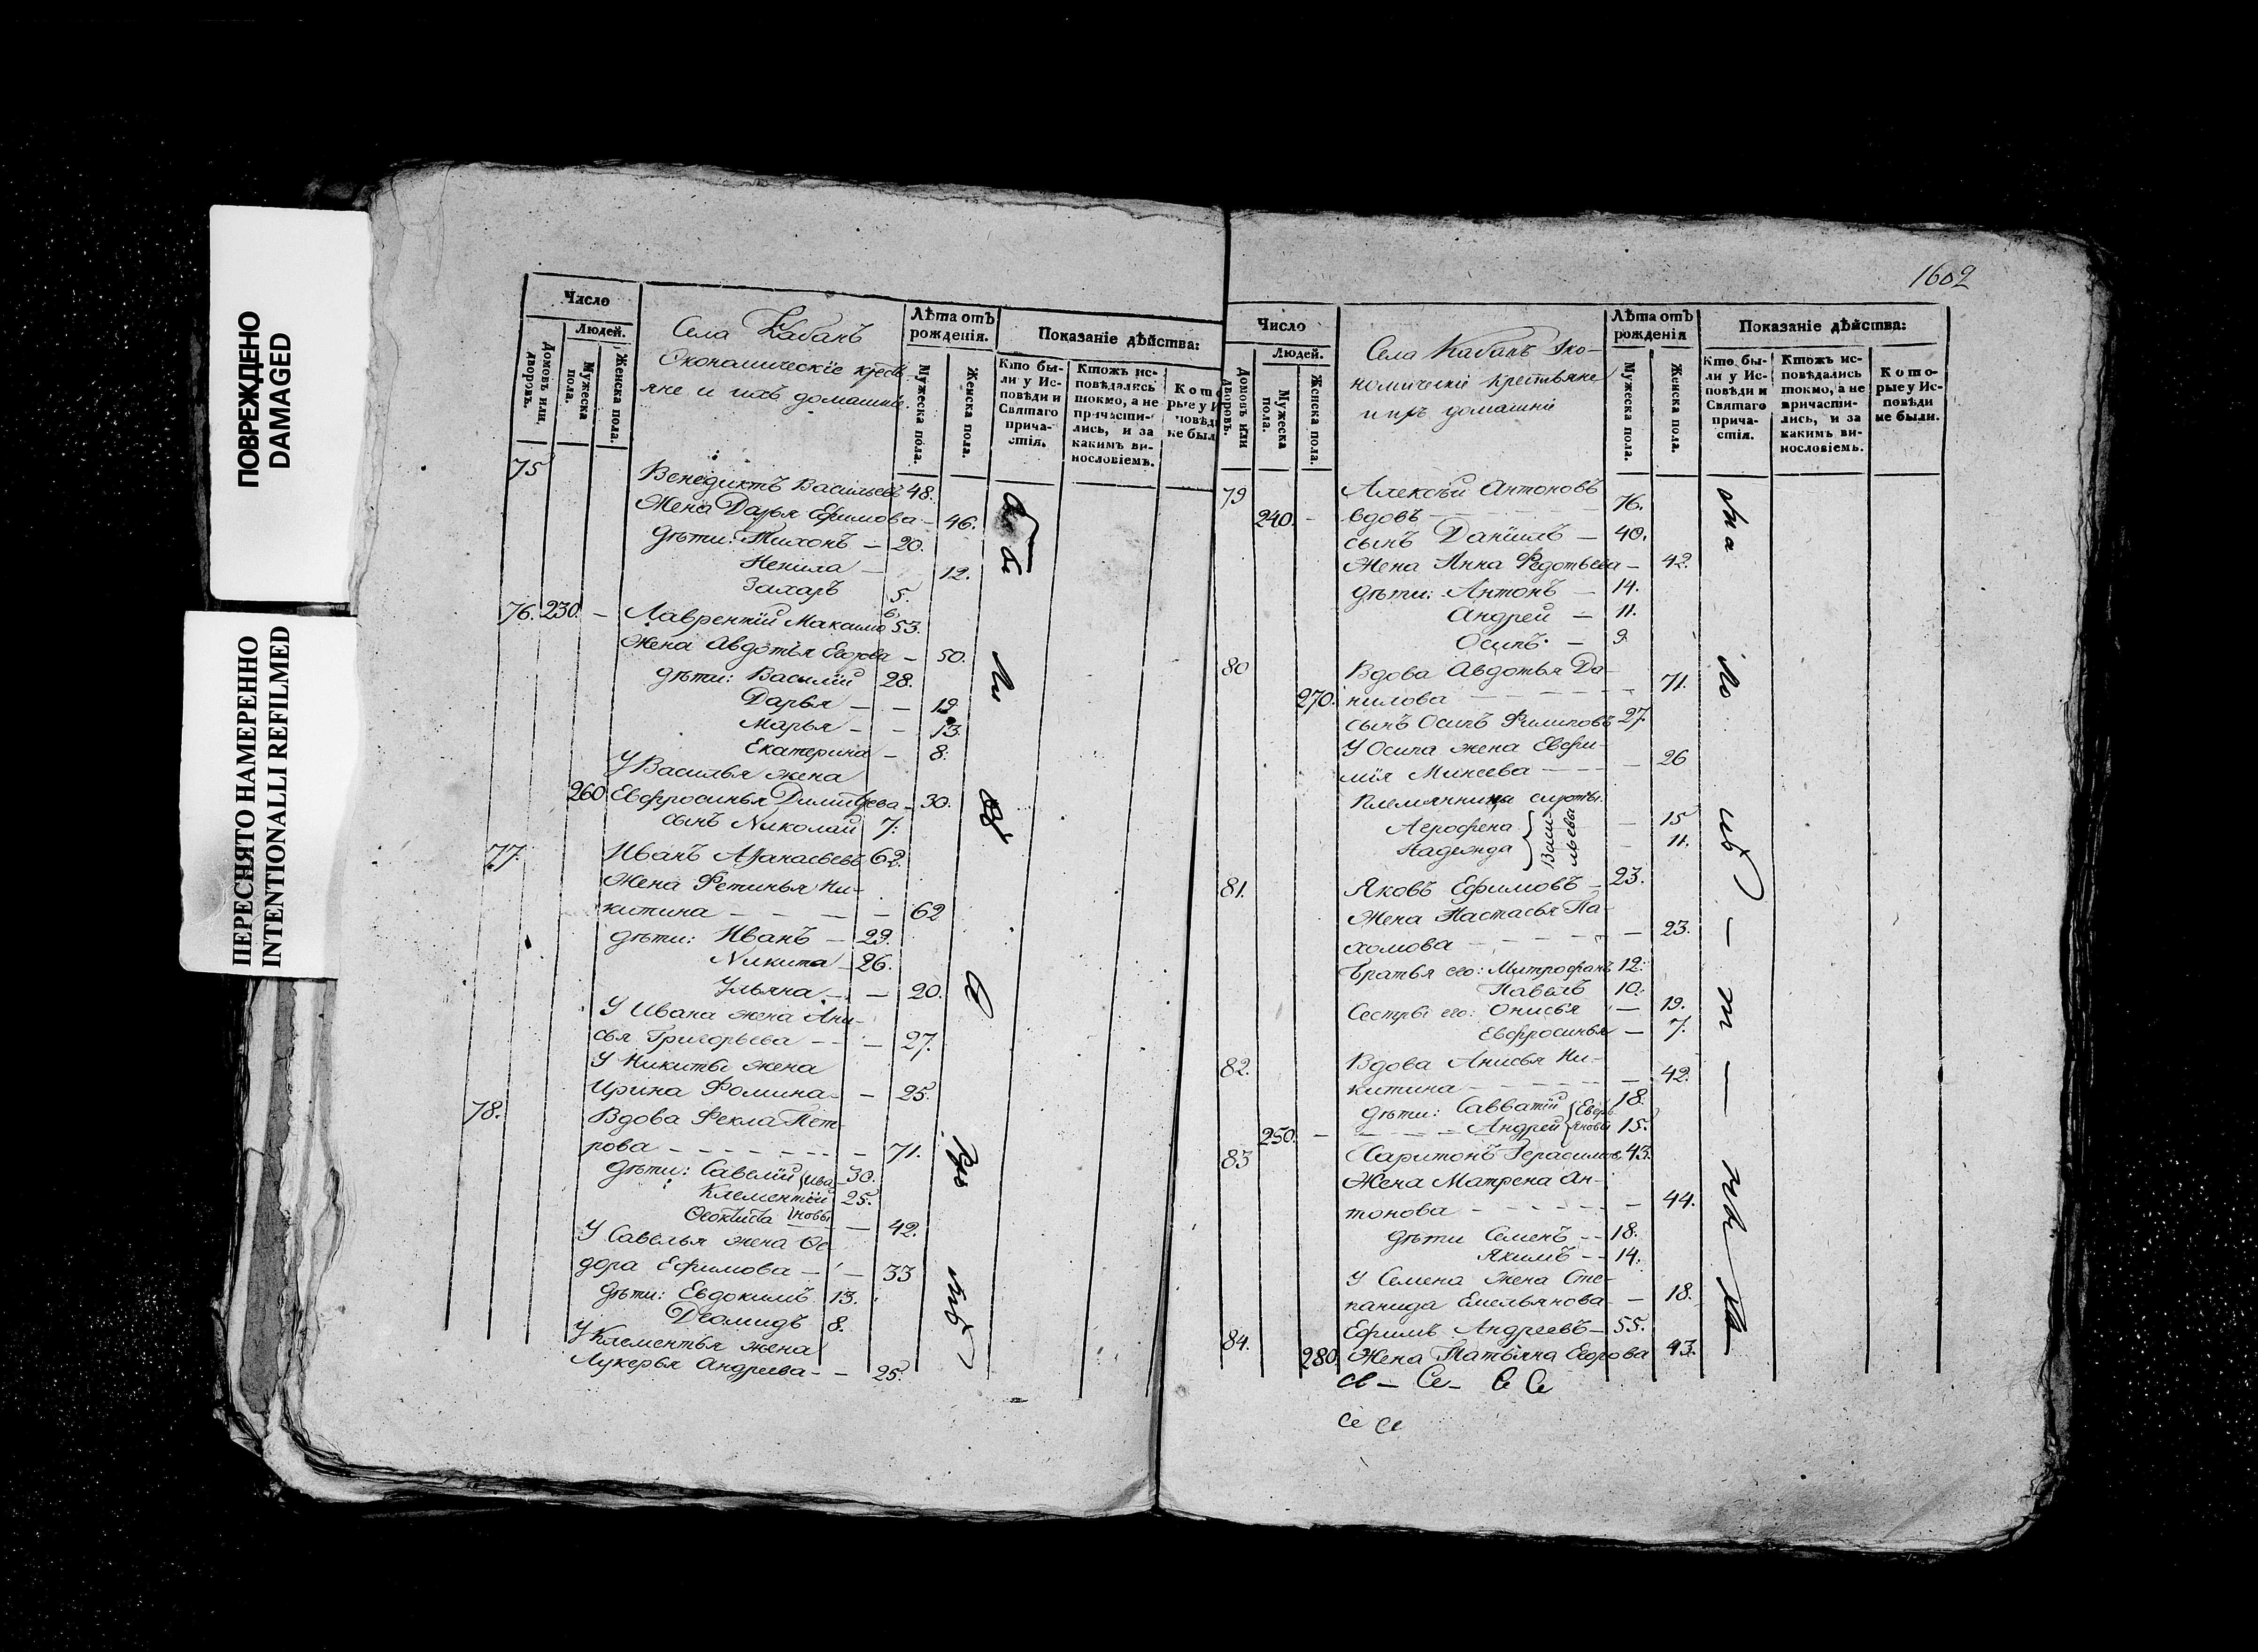 ПОВРЕЖДЕНО
DAMAGED
ПЕРЕСНЯТО НАМЕРЕННО
INTENTIONALLI REFILMED
Число
Людей.
Домовъ или дворовъ.
Мужеска пола.
Женска пола.
Села Кабанъ
Экономическіе кресть-
яне и ихъ домашніе.
Лѣта отъ рожденія.
Мужеска пола.
Женска пола.
Показаніе дѣйства:
Кто бы-
ли у Ис-
повѣди и
Святаго
прича-
стія.
Ктожъ ис-
повѣдались
токмо, а не
причасти-
лись, и за
какимъ ви-
нословіемъ.
75 Венедиктъ Васильевъ 48.
Жена Дарья Ефимова – 46.
дѣти: Тихонъ – 20.
Ненила – 12.
Захаръ 5.
76. 230. – Лаврентій Максимовъ 53.
Жена Авдотья Егорова – 50.
дѣти: Василій 28.
Дарья – – 19
Марья – – 13.
Екатерина – 8.
У Василья жена
260 Евфросинья Димитрева – 30.
сынъ Николай 7.
77. Иванъ Афанасьевъ 62.
Жена Фетинья Ни-
китина – – – – 62
дѣти: Иванъ – 29.
Никита – 26.
Ульяна – – 20.
У Ивана жена Ани-
сья Григорьева – – – 27.
У Никиты жена
Ирина Фомина – – 25.
78. Вдова Фекла Пет-
рова – – – – – – 71.
дѣти: Савелій } Ива- 30.
Клементій 25.
Феоктиста } новы – 42.
У Савелья жена Фе
дора Ефимова – – 33
дѣти: Евдокимъ 13.
Диомидъ 8.
У Клементья жена
Лукерья Андреева – – 25.
1602
Число
Людей.
Домовъ или дворовъ.
Мужеска пола.
Женска пола.
Села Кабанъ Эко-
номическіе крестьяне
и ихъ домашніе
Лѣта отъ рожденія
Мужеска пола.
Женска пола.
Показаніе дѣйства:
Кто бы-
ли у Ис-
повѣди и
Святаго
прича-
стія.
Ктожъ ис-
повѣдались
токмо, а не
причасти-
лись, и за
какимъ ви-
нословіемъ.
Кото-
рые у Ис-
повѣди
не были.
79 Алексѣй Антоновъ
240. – вдовъ – – – – 76.
сынъ Даніилъ – 40.
Жена Анна Федотьева – 42.
дѣти: Антонъ – 14.
Андрей – 11.
Осипъ – 9
80 Вдова Авдотья Да-
270. нилова – – – – – 71.
сынъ Осипъ Филиповъ 27.
У Осипа жена Евфи-
мія Минеева – – – – 26
Племянницы сироты.
Агрофена } Васи- – 15
Надежда } льевы – 11.
81. Яковъ Ефимовъ – 23.
Жена Настасья Па-
хомова – – – – – 23.
Братья его: Митрофанъ 12.
Павелъ 10.
Сестры его: Онисья – 19.
Евфросинья – 7.
82. Вдова Анисья Ни-
китина – – – – – 42.
дѣти: Савватій 18.
250. – – – – Андрей 15.
83 Харитонъ Герасимовъ 43.
Жена Матрена Ан-
тонова – – – – – 44.
дѣти Семенъ – – 18.
Якимъ – – 14.
У Семена жена Сте-
панида Емельянова – – 18.
84. Ефимъ Андреевъ – 55.
280. Жена Татьяна Егорова 43.